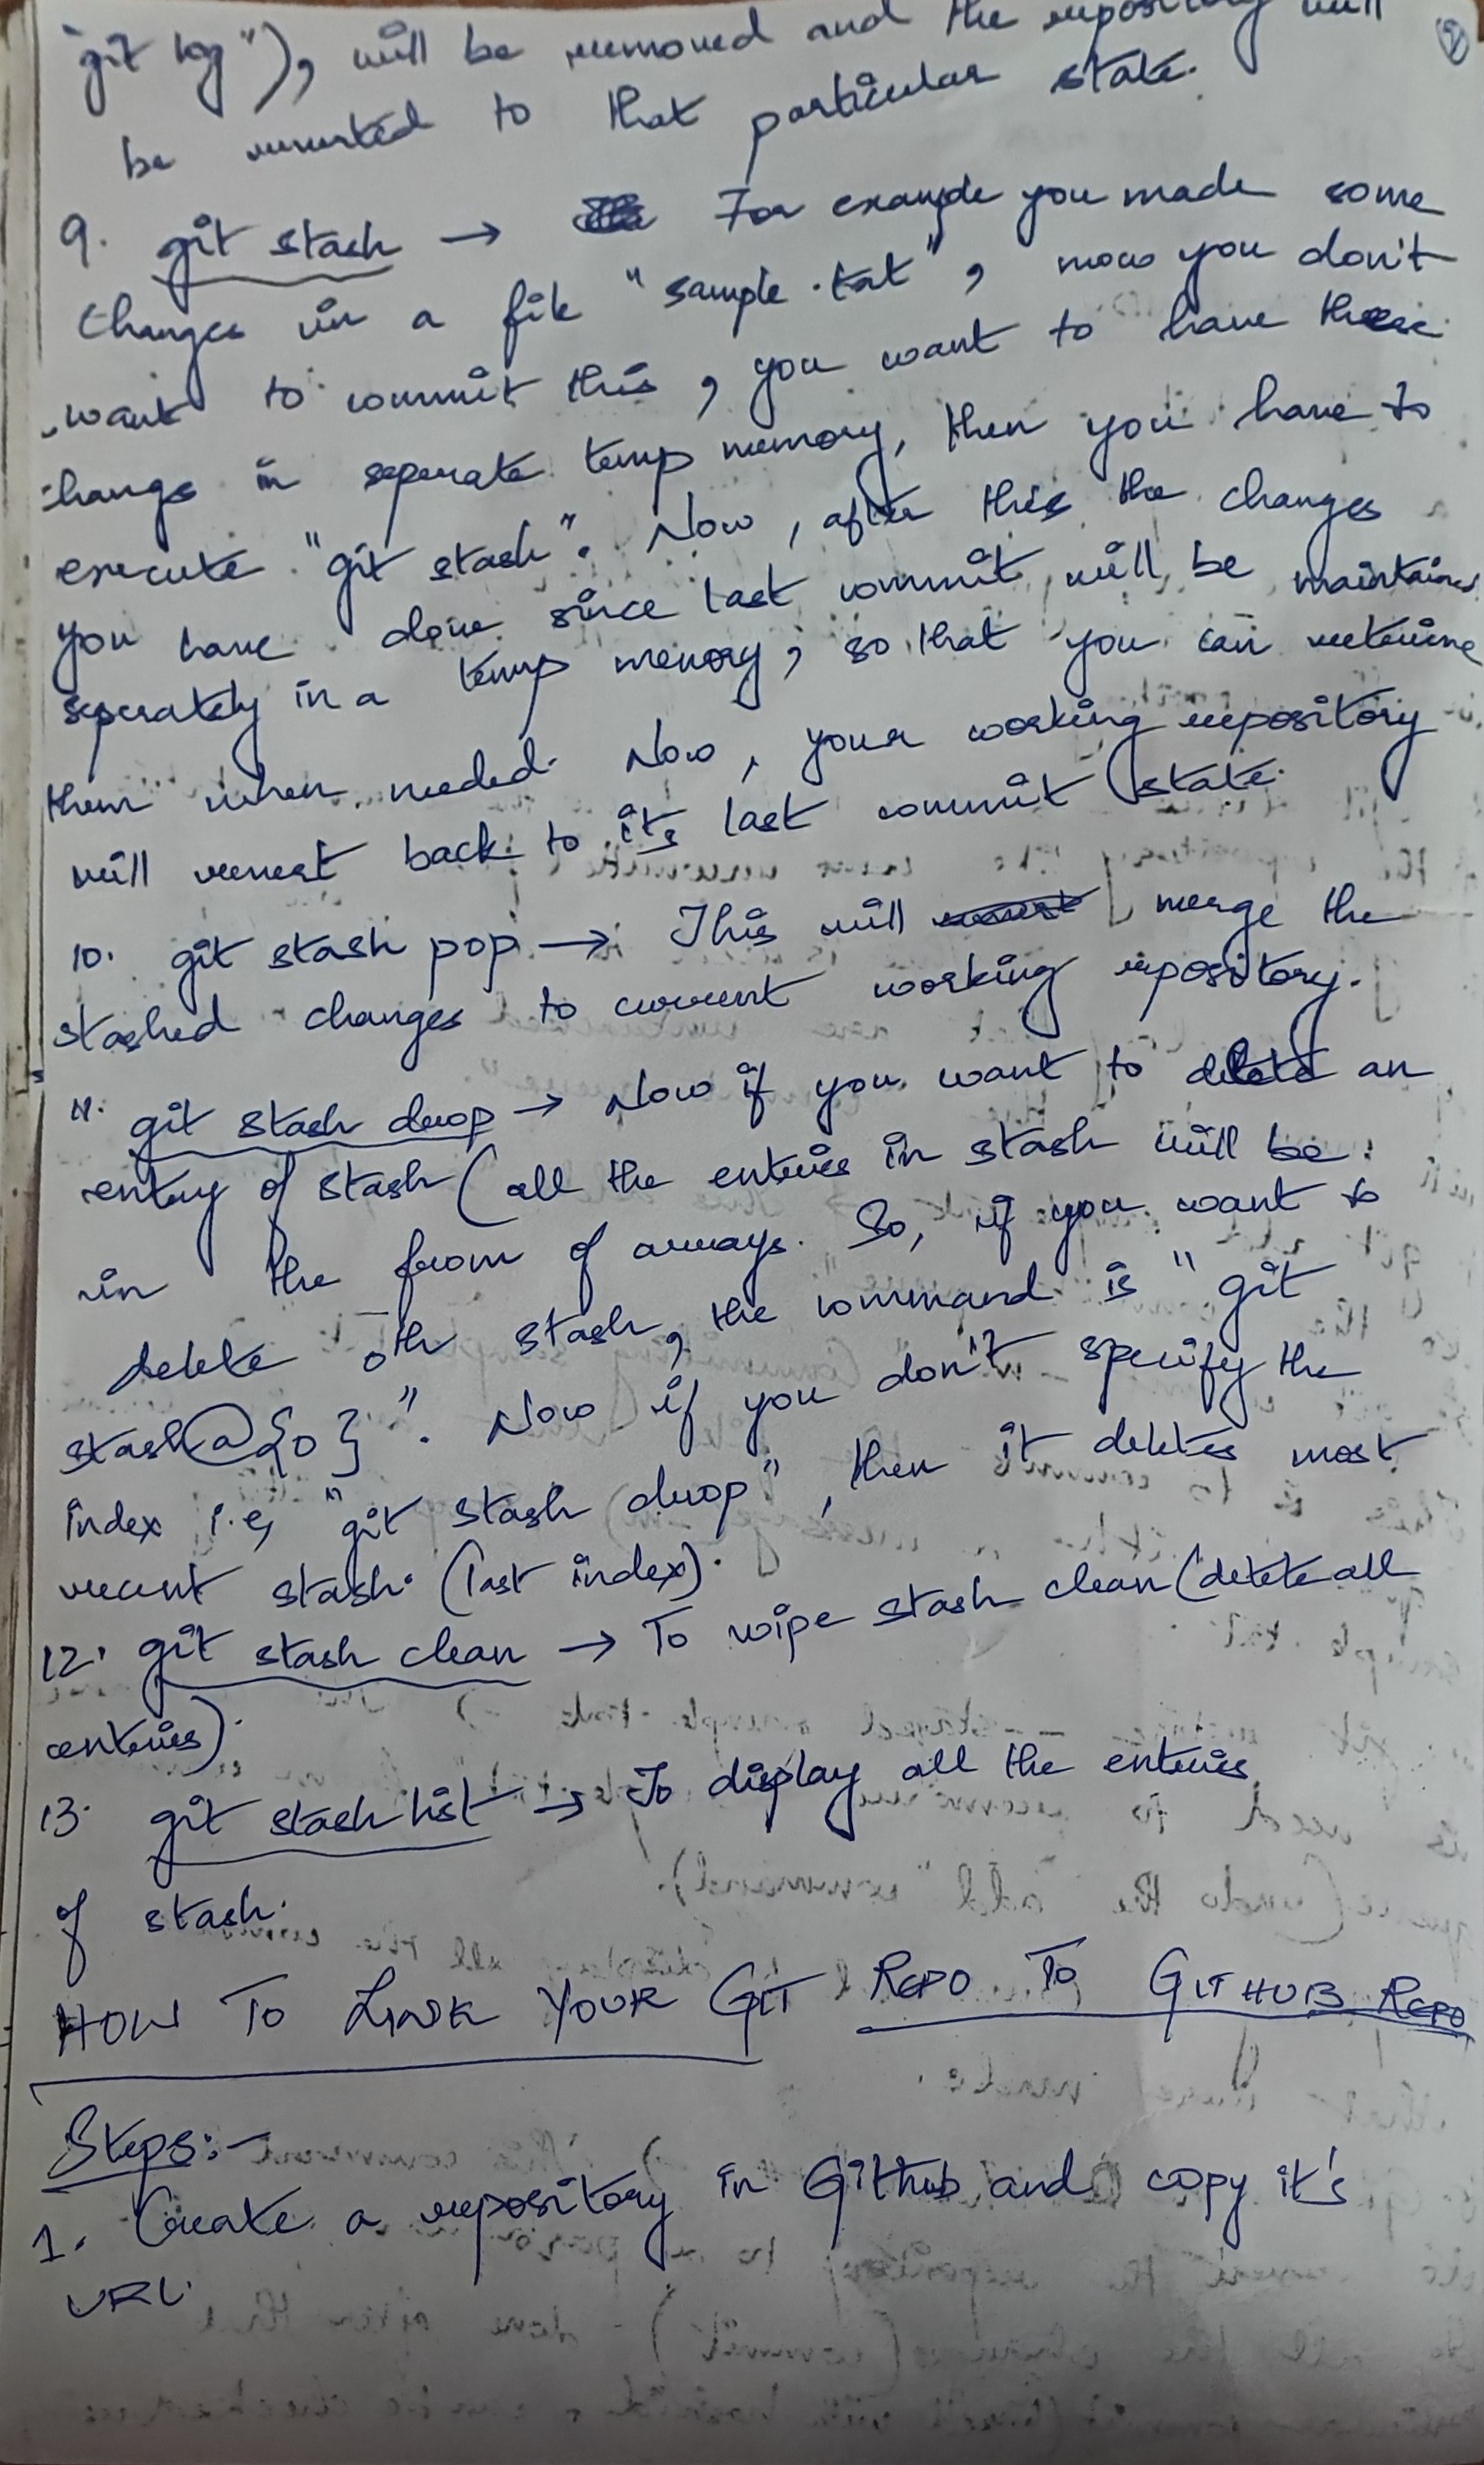 "git log"), will be removed and the repository will
be reverted to that particular state.
9. git stash → For example you made some
changes in a file "sample.txt", now you don't
want to commit this, you want to have these
changes in seperate temp memory, then you have to
execute "git stash". Now, after this the changes
you have done since last commit will be maintained
seperately in a temp memory, so that you can retrieve
them when needed. Now, your working repository
will revert back to its last commit state.
10. git stash pop → This will merge the
stashed changes to current working repository.
11. git stash drop → Now if you want to delete an
entry of stash (all the entries in stash will be
in the from of arrays. So, if you want to
delete 0th stash, the command is "git
stash@{0}". Now if you don't specify the
index i.e, "git stash drop", then it deletes most
recent stash. (last index).
12. git stash clean → To wipe stash clean (delete all
entries).
13. git stash list → To display all the entries
of stash.
HOW TO LINK YOUR GIT REPO TO GITHUB REPO
Steps:-
1. Create a repository in Github and copy it's
URL.